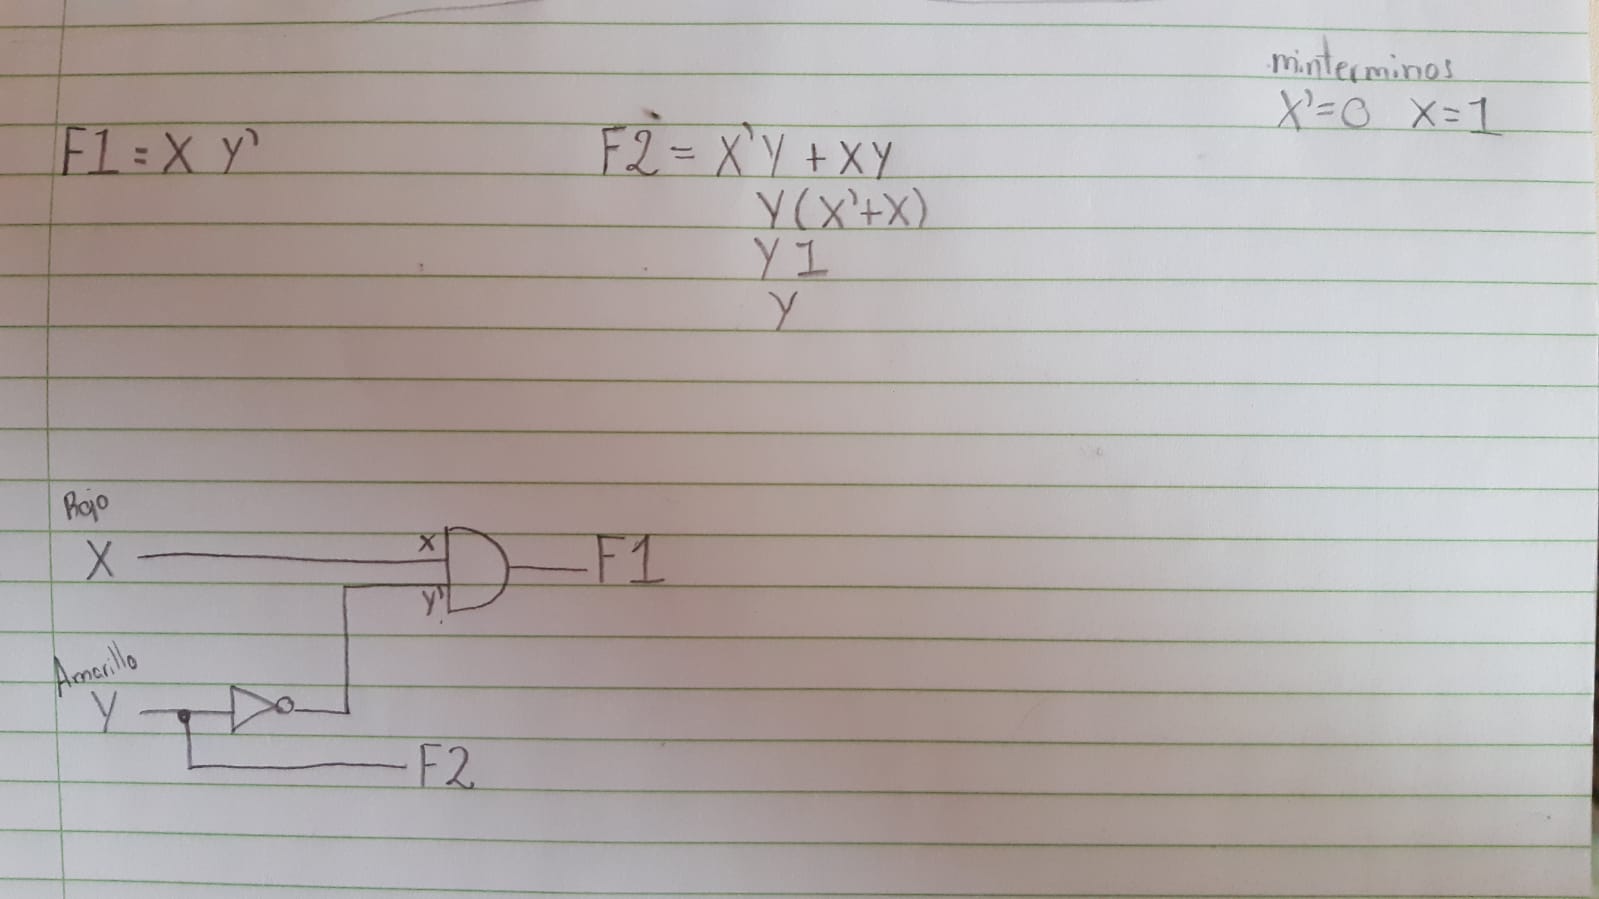 minterminos
X'=0 X=1
F1=X Y'
F2=X'Y+XY
Y(X'+X)
Y1
Y
Rojo
X
X
F1
Y'
Amarillo
Y
F2